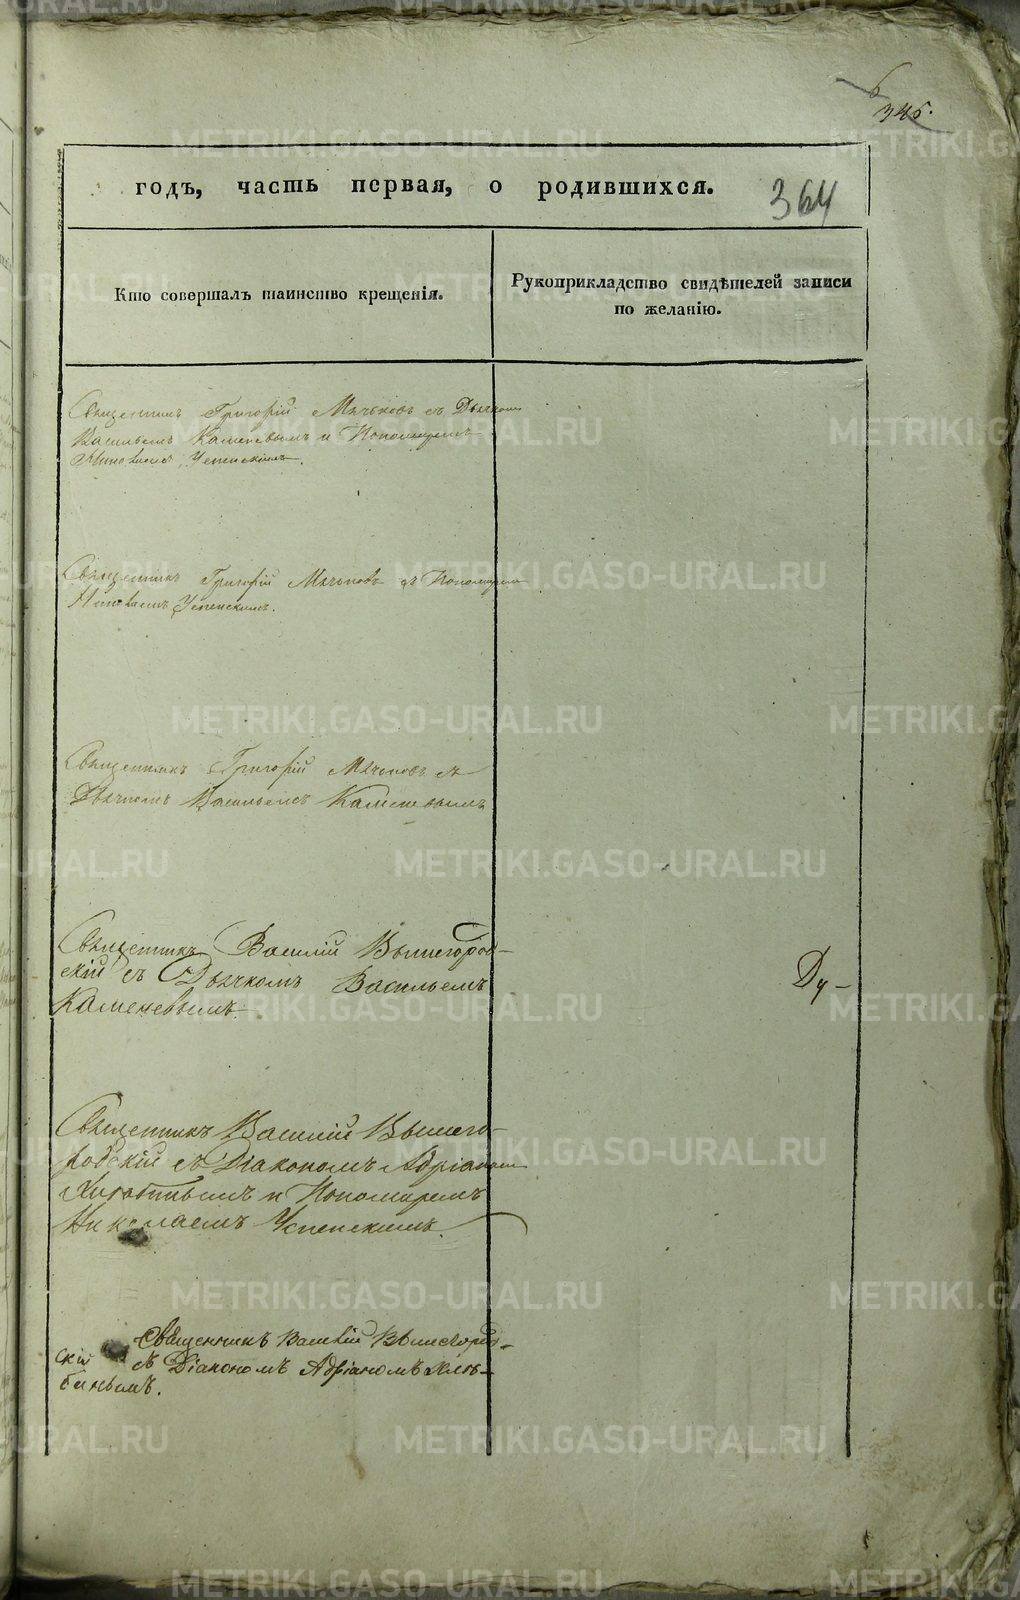 345.
364
годъ, часть первая, о родившихся.
Кто совершалъ таинство крещенія.
Рукоприкладство свидѣтелей записи
по желанію.
Священникъ Григорій Мячковъ съ Дьячкомъ
Васильемъ Каменевымъ и Пономаремъ
Успенскимъ.
Священникъ Григорій Мячковъ съ Пономаремъ
Успенскимъ.
Священникъ Григорій Мячковъ съ
Дьячкомъ Васильемъ Каменевымъ
Священникъ Василій Вышегород-
скій съ Дьячкомъ Васильемъ
Каменевымъ.
Ду-
Священникъ Василій Вышего-
родскій съ Діакономъ Адріаномъ
и Пономаремъ
Николаемъ Успенскимъ.
Священникъ Василій Вышегород-
скій съ Діакономъ Адріаномъ Хлопо-
бинымъ.
METRIKI.GASO-URAL.RU